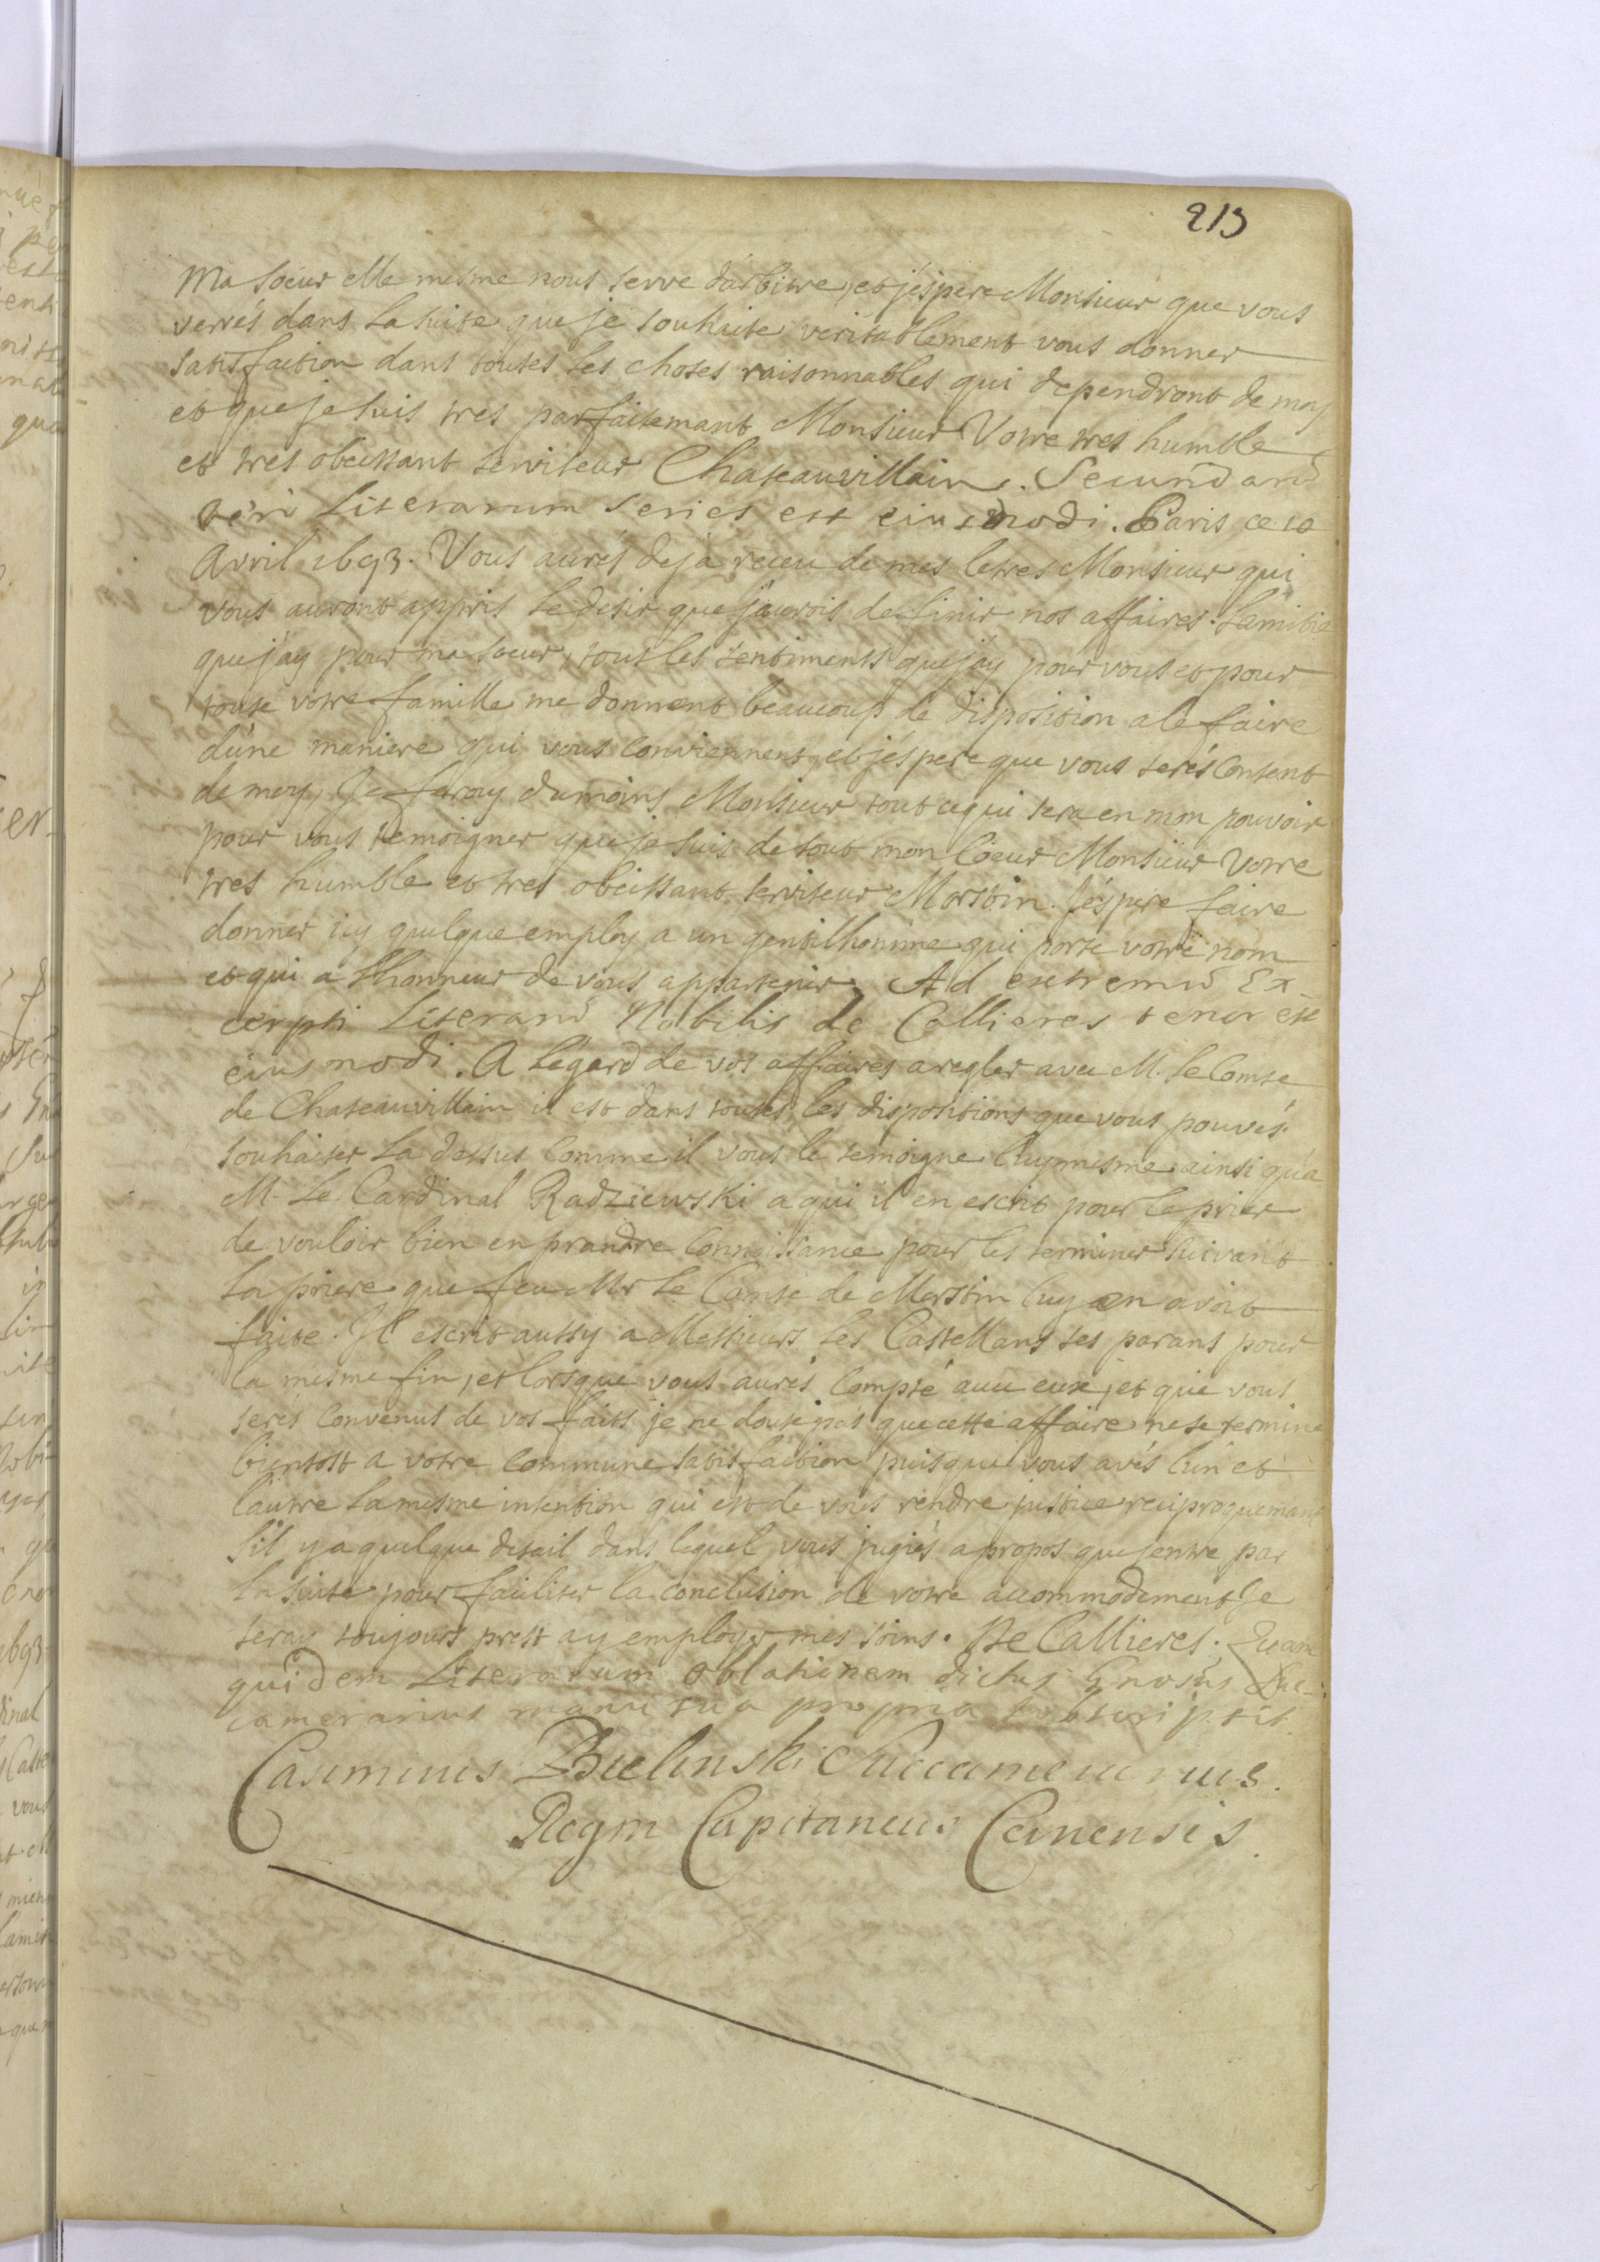 213
Ma soeur elle mesme nous serve d'arbitre, et j'espere Monsieur que vous
verrés dans la suite que je souhaite veritablement vous donner
satisfaction dans toutes les choses raisonnables qui dependront de moy
et que je suis tres parfaitemant Monsieur Votre tres humble
et tres obeissant serviteur Chateauvillain. Secundarũ
verò Literarum series est eiusmodi. Paris ce 10
Avril 1693. Vous aurés deja receu de mes letres Monsieur qui
vous auront appris le desir que j'aurois de finir nos affaires. Lamitié
que j'ay pour ma soeur, tous les sentiments que j'ay pour vous et pour
toute votre famille me donnent beaucoup de disposition a le faire
d'une maniere qui vous conviennent, et j'espere que vous serés content
de moy, Je feray dumoins Monsieur tout cequi sera en mon pouvoir
pour vous temoigner que je suis de tout mon Coeur Monsieur Votre
tres humble et tres obeissant serviteur Morstin. J'espere faire
donner icy quelque employ a un gentilhomme qui porte votre nom
et qui a l'honneur de vous appartenir. Ad extremũ Ex-
cerpti Literarũ Nobilis de Callieres tenor est
eiusmodi. A l'égard de vos affaires a regler avec M. le Comte
de Chateauvillain il est dans toutes les dispositions que vous pouvés
souhaiter la dessus comme il vous le temoigne luymesme ainsi qu'a
M. Le Cardinal Radziewski a qui il en escrit pour le prier
de vouloir bien en prandre connoissance pour les terminer suivant
la priere que feu Mr le Comte de Morstin luy en avoit
faite. Il escrit aussy a Messieurs les Castellans ses parans pour
la mesme fin, et lorsque vous aurés compté avec eux, et que vous
serés convenus de vos faits je ne doute pas que cette affaire ne se termine
bientost a votre commune satisfaction puisque vous avés l'un et
l'autre la mesme intention qui est de vous rendre justice reciproquemant
S'il y a quelque detail dans lequel vous jugiés apropos que j'entre par
la suite pour faciliter la conclusion de votre accommodement Je
seray toujours prest a y employer mes soins. De Callieres. Quam
quidem Literarum oblationem dictus Gnosus Suc-
camerarius manu sua propria subscripsit.
Casimirus Bielinski Succamerarius
Regni Capitaneus Cernensis